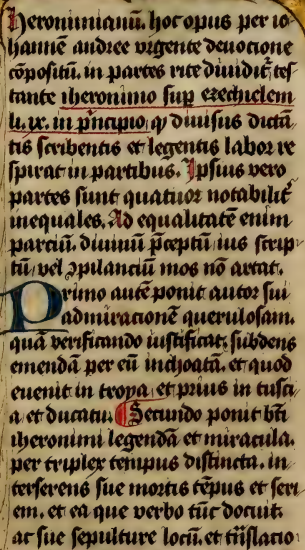 Ieronimianū. hoc opus per io⸗
hannem andree vrgente deuocione
cōpositū. in partes rite diuidit᷑, tes⸗
tante iheronimo sup̄ ezechielem
li. ix. in p̄ncipio, ꝙ diuisus dictā⸗
tis scribentis et legentis labor re⸗
spirat in partibus. Ipsius vero
partes sunt quatuor notabilit᷑
inequales. Ad equalitatē enim
parciū. diuinū p̄ceptū ius scrip⸗
tū vel ꝯpilanciū mos nō artat.
Primo autē ponit autor sui
admiracionē querulosam.
quā verificando iustificat. subdens
emendā per eū inchoatā. et quod
euenit in troya. et prius in tusci⸗
a et ducatu. Secundo ponit bt̄i
iheronimi legendā et miracula.
per triplex tempus distincta. in⸗
terserens sue mortis tēpus et seri⸗
em. et ea que verbo tūc docuit.
ac sue sepulture locū. et t̄nslatio